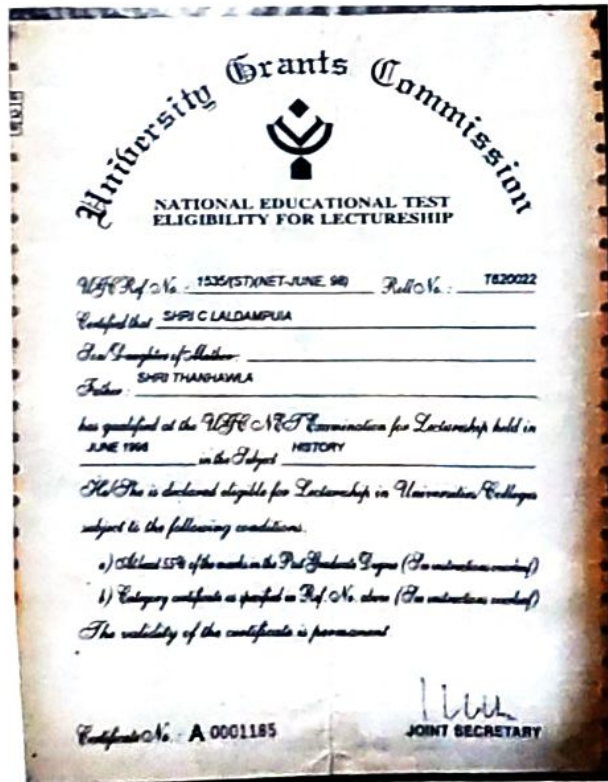 University Grants Commission
NATIONAL EDUCATIONAL TEST
ELIGIBILITY FOR LECTURESHIP
UGC Ref. No. : 1535/(ST)(NET-JUNE, 98) Roll No. : T620022
Certified that SHRI C LALDAMPUIA
Son/Daughter of Mother:
Father : SHRI THANHAWLA
has qualified at the UGC NET Examination for Lectureship held in
JUNE 1998 in the Subject HISTORY
He/She is declared eligible for Lectureship in Universities/Colleges
subject to the following conditions.
a) At least 55% of the marks in the Post Graduate Degree (See instructions overleaf)
b) Category certificate as specified in Ref. No. above (See instructions overleaf)
The validity of the certificate is permanent
Certificate No. A 0001185
JOINT SECRETARY